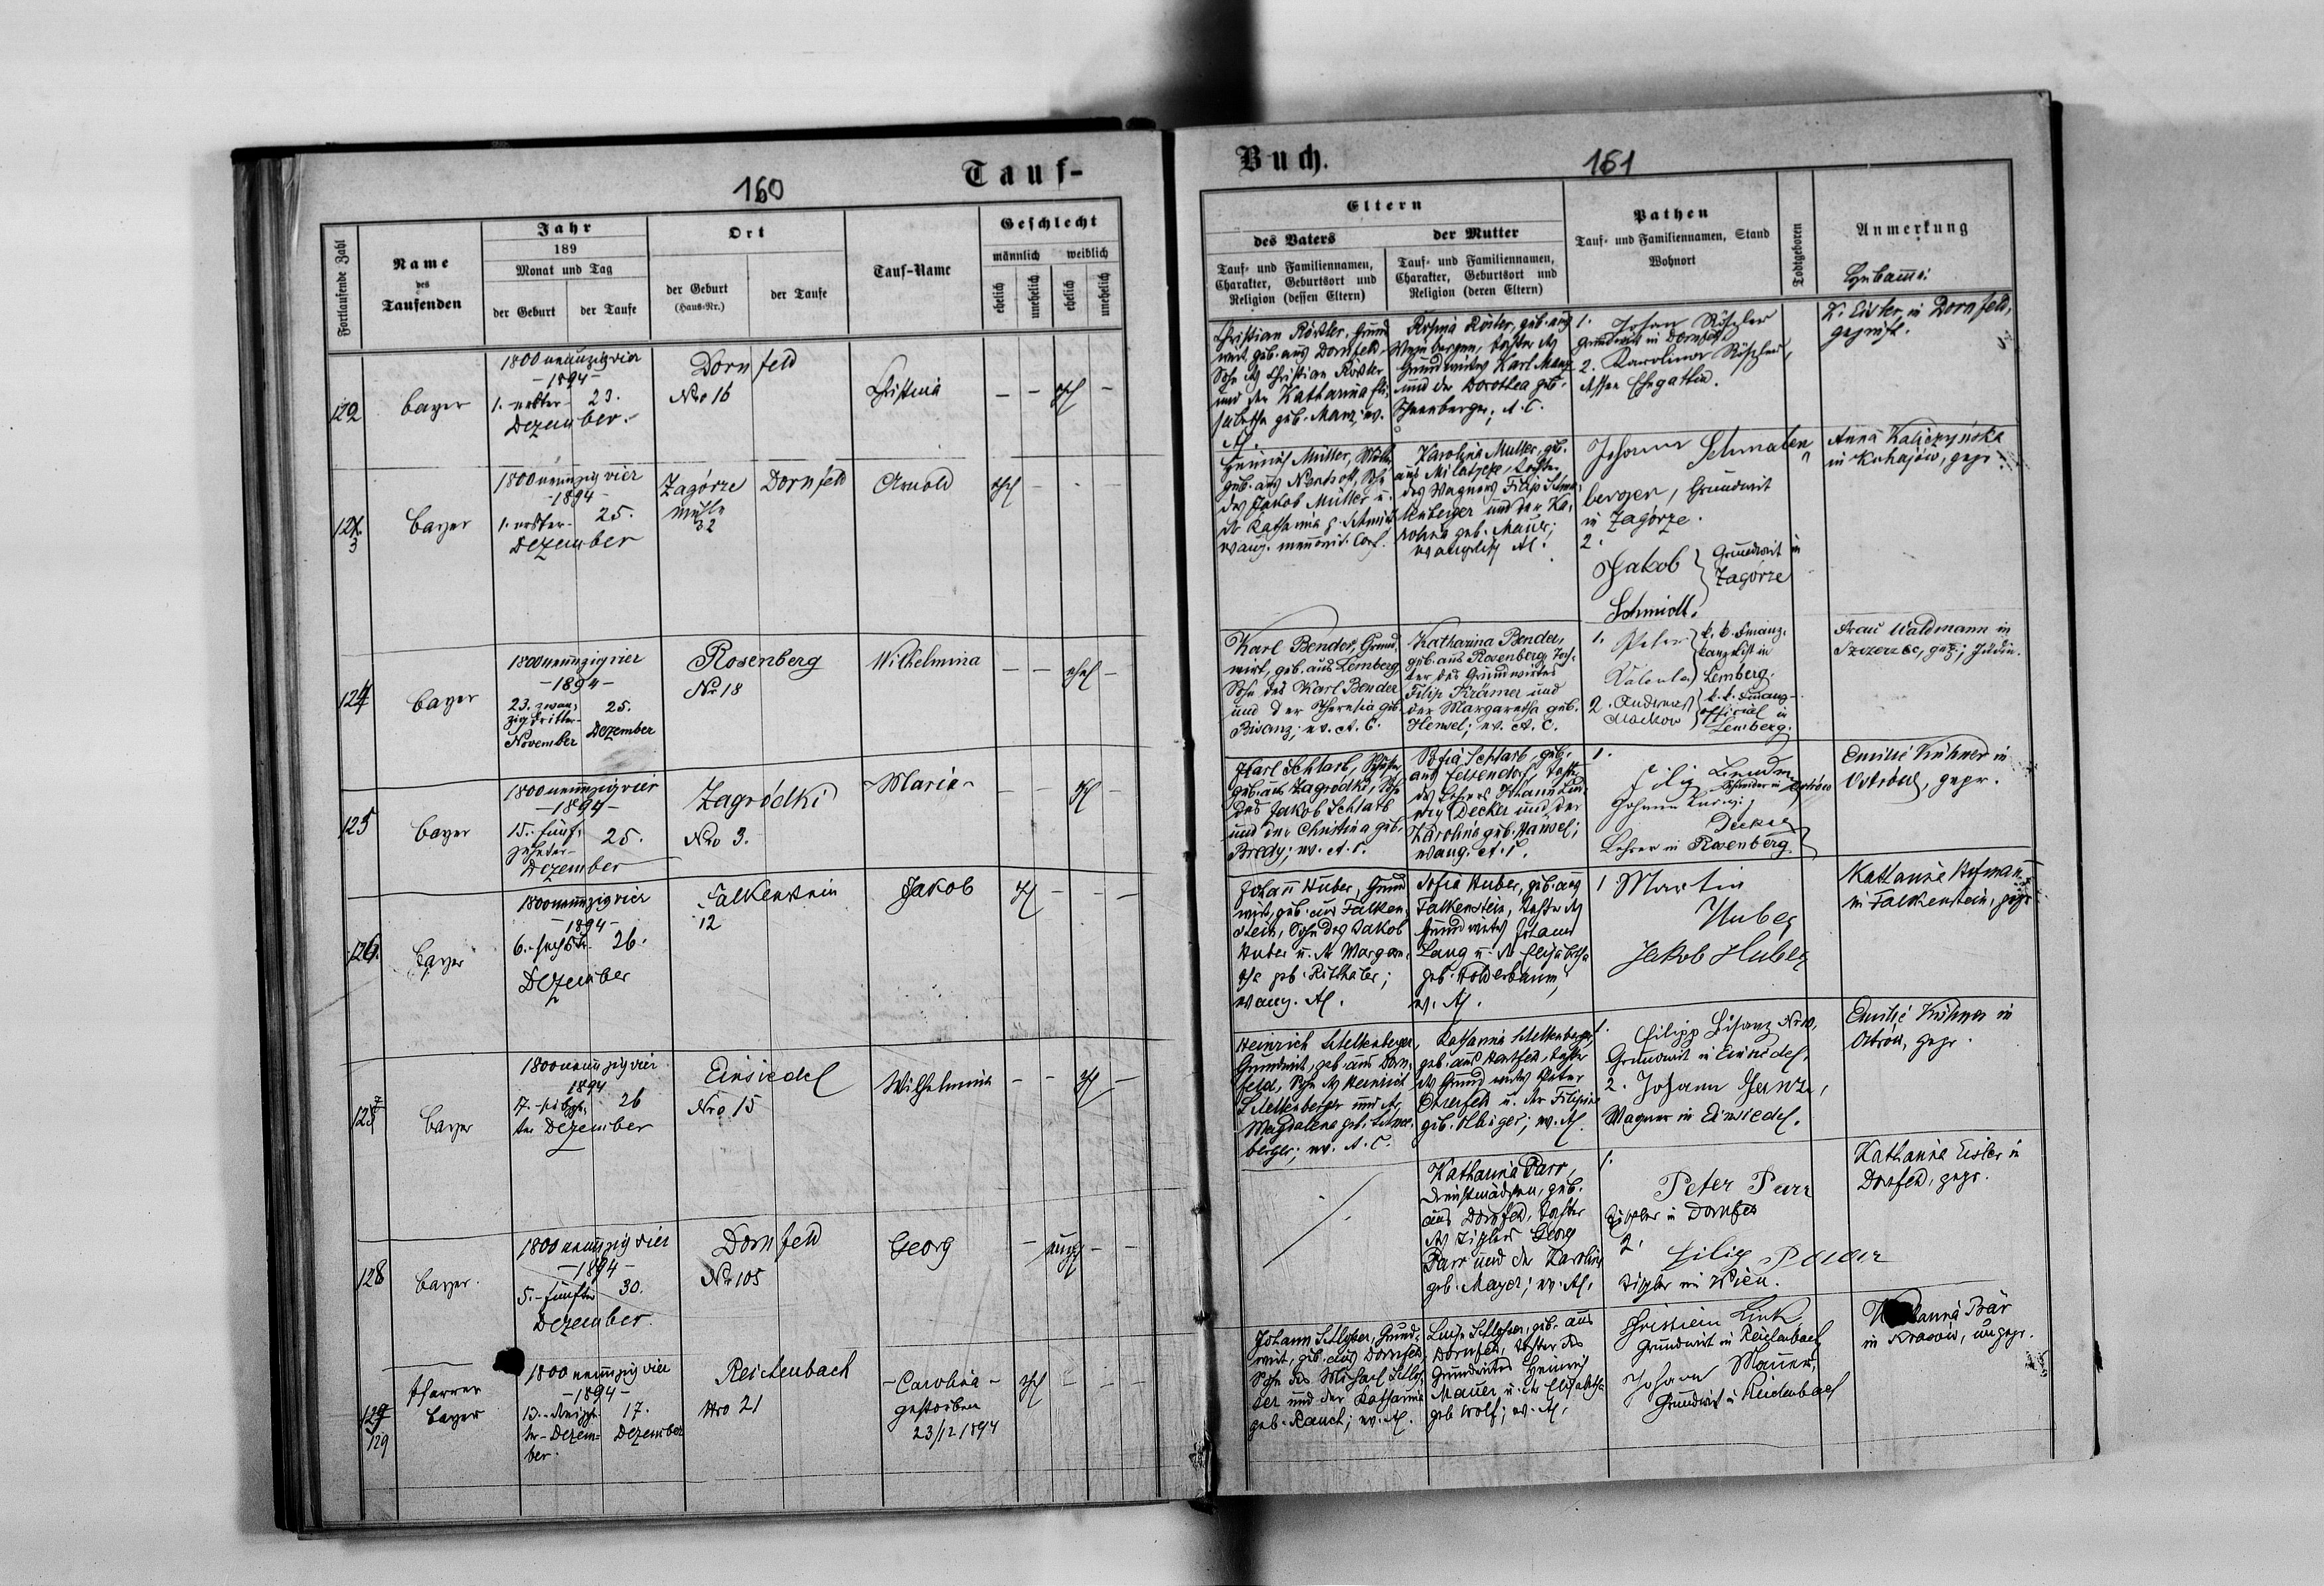 160
Tauf-
Fortlaufende Zahl
Name
des
Taufenden
Jahr
189
Monat und Tag
der Geburt
der Taufe
Ort
der Geburt
(Haus-Nr.)
der Taufe
Tauf-Name
Geschlecht
männlich
weiblich
ehelich
unehelich
ehelich
unehelich
122
Bayer
1800 neunzig vier
-1894-
1. erster- 23.
Dezember.
Dornfeld
Nro 16
Christina
- - ehl -
123
Bayer
1800 neunzig vier
-1894-
1. erster- 25.
Dezember
Zagórze
Mühle
32
Dornfeld
Arnold
ehl - - -
124
Bayer
1800 neunzig vier
-1894-
23. zwan-
zig dritter- 25.
November Dezember
Rosenberg
No 18
Wilhelmina
- - ehel -
125
Bayer
1800 neunzig vier
-1894-
15. fünf-
zehnter- 25.
Dezember
Zagródki
Nro 3.
Maria
- - ehl -
126.
Bayer
1800 neunzig vier
-1894-
6. sechster 26.
Dezember
Falkenstein
12
Jakob
ehl - - -
127
Bayer
1800 neunzig vier
1894
26
Dezember
Einsiedel
Nro 15
Wilhelmina
- - ehl -
128
Bayer.
1800 neunzig vier
-1894-
5.- fünfter 30.
Dezember.
Dornfeld
No 105
Georg
- unehl - -
129
129
Pfarrer
Bayer
1800 neunzig vier
-1894-
13.- dreizehn- 17.
ter- Dezem- Dezember
ber.
Reichenbach
Nro 21
-Carolina-
gestorben
23/12 1894
ehl - - -
Buch.
161
Eltern
des Vaters
der Mutter
Tauf- und Familiennamen,
Charakter, Geburtsort und
Religion (dessen Eltern)
Tauf- und Familiennamen,
Charakter, Geburtsort und
Religion (deren Eltern)
Pathen
Tauf- und Familiennamen, Stand
Wohnort
Todtgeboren
Anmerkung
Hebamme:
Christian Rößler, Grund-
wirt, geb. aus Dornfeld,
Sohn des Christian Rößler
und der Katharina Eli-
sabetha geb. Manz; ev.
Weinbergen, Tochter des
Grundwirtes Karl Manz
und der Dorothea geb.
A. C.
1. Johann Rößler
Grundwirt in Dornfeld
2. Karolina Rößler,
dessen Ehegattin.
K. Eisler, in Dornfeld,
geprüft.
Heinrich Müller,
des Jakob Müller u.
der Katharina g. Schmidt
Karolina Muller, geb.
des Wagners Filip Schma-
lenberger und der Ka-
rolina geb. Mauer;
evangelisch
Johann Schmalen
berger, Grundwirt
in Zagórze.
2.
Jakob
Schmidt.
Grundwirt in
Zagórze
Anna Kaliczyńska
in Kuhajów, gepr.
Karl Bender, Grund-
wirt, geb. aus Lemberg,
Sohn des Karl Bender
und der Theresia geb.
Bisanz; ev. A. C.
Katharina Bender,
geb. aus Rosenberg, Toch-
ter des Grundwirtes
Filip Krämer und
der Margaretha geb.
Hensel; ev. A. C.
1. Peter
k. k. Finanz-
kanzelist in
Lemberg.
2. Andreas
k. k. Finanz-
official in
Lemberg.
Frau Waldmann in
Szczerzec, gepr.; Jüdin.
Karl Schlarb,
geb. aus Zagrodki, Sohn
des Jakob Schlarb
und der Christina geb.
Bredy; ev. A. C.
Sofia Schlarb, geb.
aus Feltendorf, Tochter
des Lehrers Johann Lud-
wig Decker und der
Karolina geb. Hansel;
evang. A. C.
1.
Filip
Schneider in Ostrów
Johann Ludwig
Decker
Lehrer in Rosenberg
Emilie Kühner in
Ostrów, gepr.
Johann Huber, Grund-
wirt, geb. aus Falken-
stein, Sohn des Jakob
Huber u. der Margare-
tha geb. Ritthaler;
evang. AC.
Sofia Huber, geb. aus
Falkenstein, Tochter des
Grundwirtes Johann
Lang u. der Elisabetha
geb. Holderbaum,
ev. AC.
1 Martin
Huber
Jakob Huber
Katharina Hofmann
in Falkenstein, gepr
Heinrich Schelkenberger,
Grundwirt, geb. aus Dorn-
feld, Sohn des Heinrich
Schelkenberger und der
Magdalena
berger; ev. A. C.
Katharina Schelkenberger,
geb. aus Hartfeld, Tochter
des Grundwirtes Peter
u. der Filipina
ev. AC.
1. Philipp Bisanz
Grundwirt in Einsiedel,
2. Johann Manz,
Wagner in Einsiedel.
Emilie Kühner in
Ostrów, gepr.
Katharina Parr,
Dienstmädchen, geb.
aus Dornfeld, Tochter
des Tischlers Georg
Parr und der Karolina
geb. Mayer; ev. AC.
1.
Peter Parr
Tischler in Dornfeld
2.
Filip
Tischler in Wien.
Katharina Eisler in
Dornfeld, gepr.
Johann Schlosser, Grund-
wirt, geb. aus Dornfeld,
Sohn des Michael Schlos-
ser und der Katharina
geb. Rauch; ev. AC.
Luise Schlosser, geb. aus
Dornfeld, Tochter des
Grundwirtes Heinrich
Mauer u. der Elisabetha
geb. Wolf; ev. AC.
Christian Link
Grundwirt in Reichenbach
Johann Mauer,
Grundwirt in Reichenbach
Bär
in Krasów, ungepr.